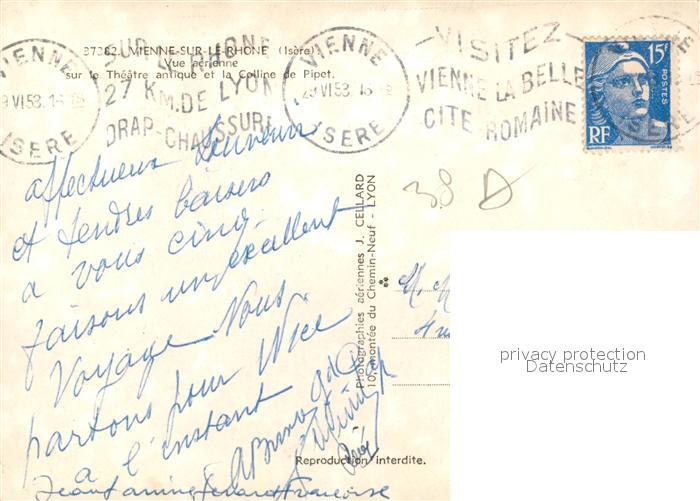 87382. VIENNE-SUR-LE-RHONE (Isère)
Vue aérienne
sur le Théâtre antique et la Colline de Pipet.
VIENNE
ISERE
SUR RHONE
27 KM.DE LYON
DRAP-CHAUSSURE
VIENNE
ISERE
VISITEZ
VIENNE LA BELLE
CITE ROMAINE
15F
POSTES
RF
ISERE
38
affectueux souvenirs
et tendres baisers
a vous cinq.
faisons un excellent
Voyage Nous
partons pour Nice
a l'instant
Photographies aériennes J. CELLARD
10, montée du Chemin-Neuf - LYON
M.
Reproduction interdite.
privacy protection
Datenschutz